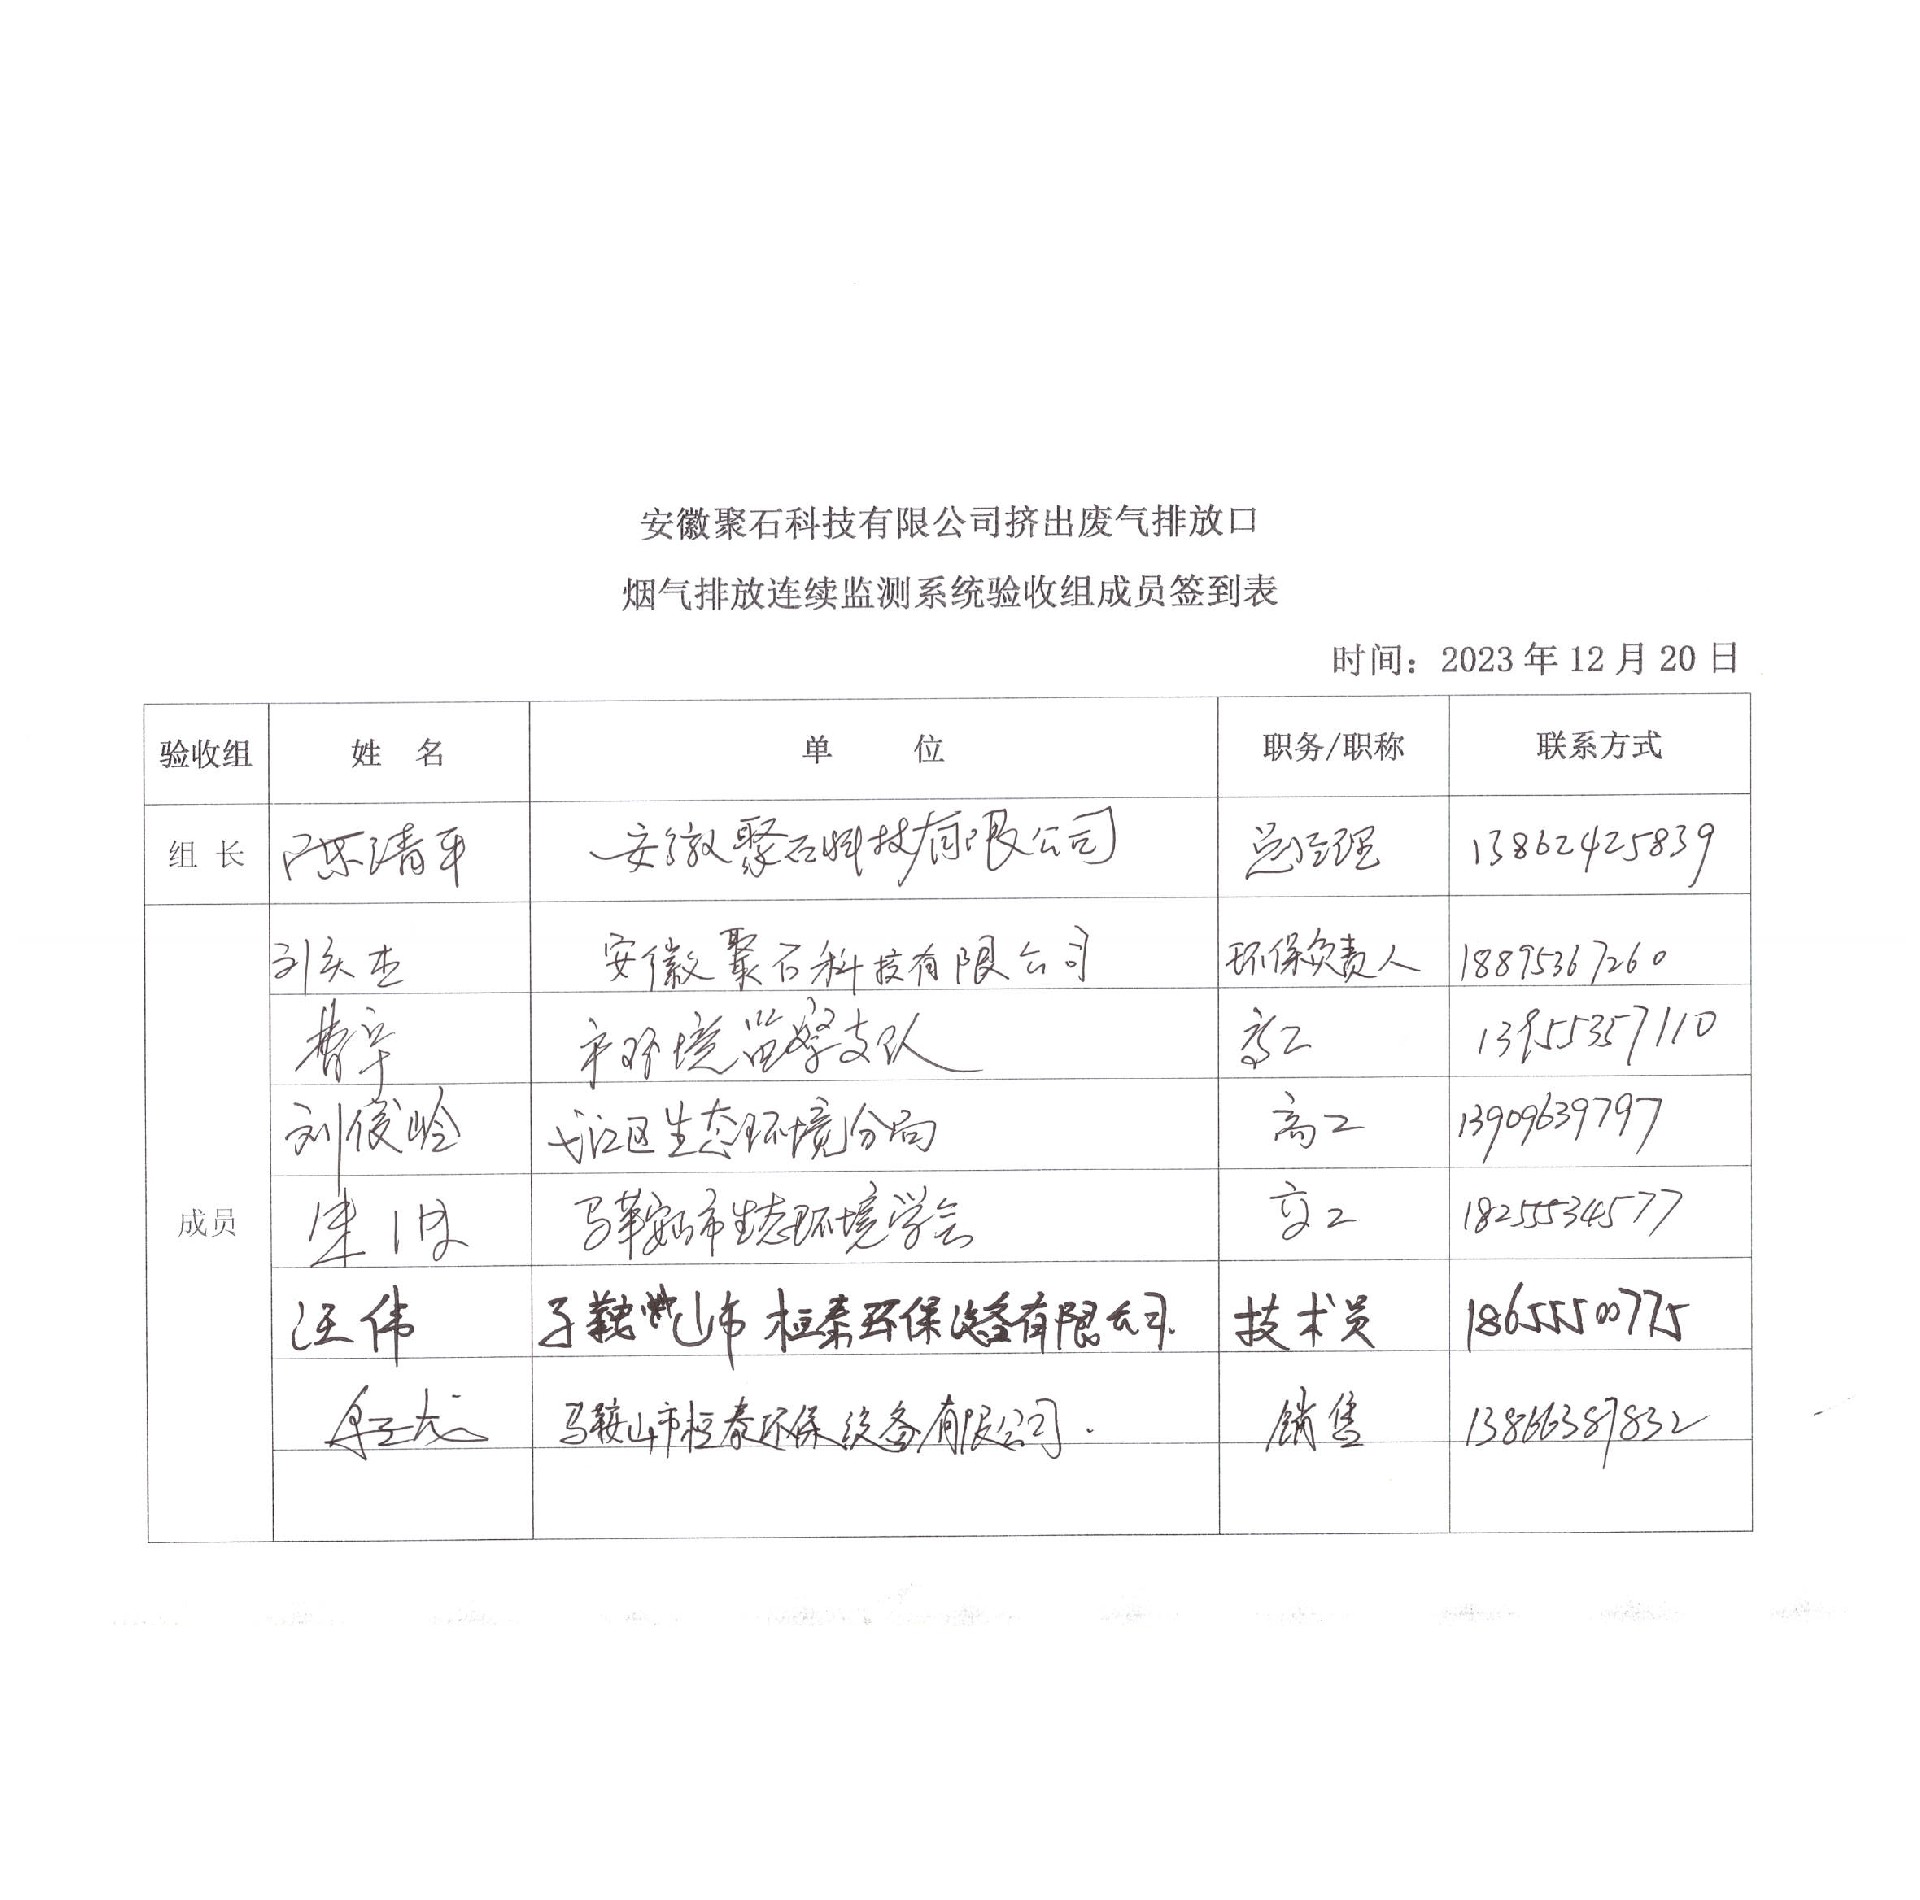 安徽聚石科技有限公司挤出废气排放口
烟气排放连续监测系统验收组成员签到表
时间：2023年12月20日
验收组 姓 名 单 位 职务/职称 联系方式
组 长 陈清平 安徽聚石科技有限公司 总经理 13862425839
刘庆杰 安徽聚石科技有限公司 环保负责人 18895367260
市环境监察支队 高工 13955357110
刘俊岭 江区生态环境分局 高工 13909639797
成员 马鞍山市生态环境学会 高工 18255534577
汪伟 马鞍山市桓泰环保设备有限公司. 技术员 18655500775
马鞍山市桓泰环保设备有限公司. 销售 13866387832